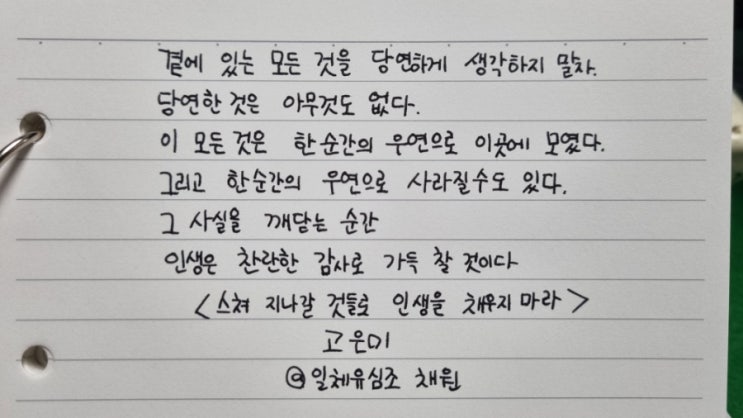 곁에 있는 모든 것을 당연하게 생각하지 말자.
당연한 것은 아무것도 없다.
이 모든 것은 한 순간의 우연으로 이곳에 모였다.
그리고 한순간의 우연으로 사라질수도 있다.
그 사실을 깨닫는 순간
인생은 찬란한 감사로 가득 찰 것이다
<스쳐 지나갈 것들로 인생을 채우지 마라>
고은미
@일체유심조 채원